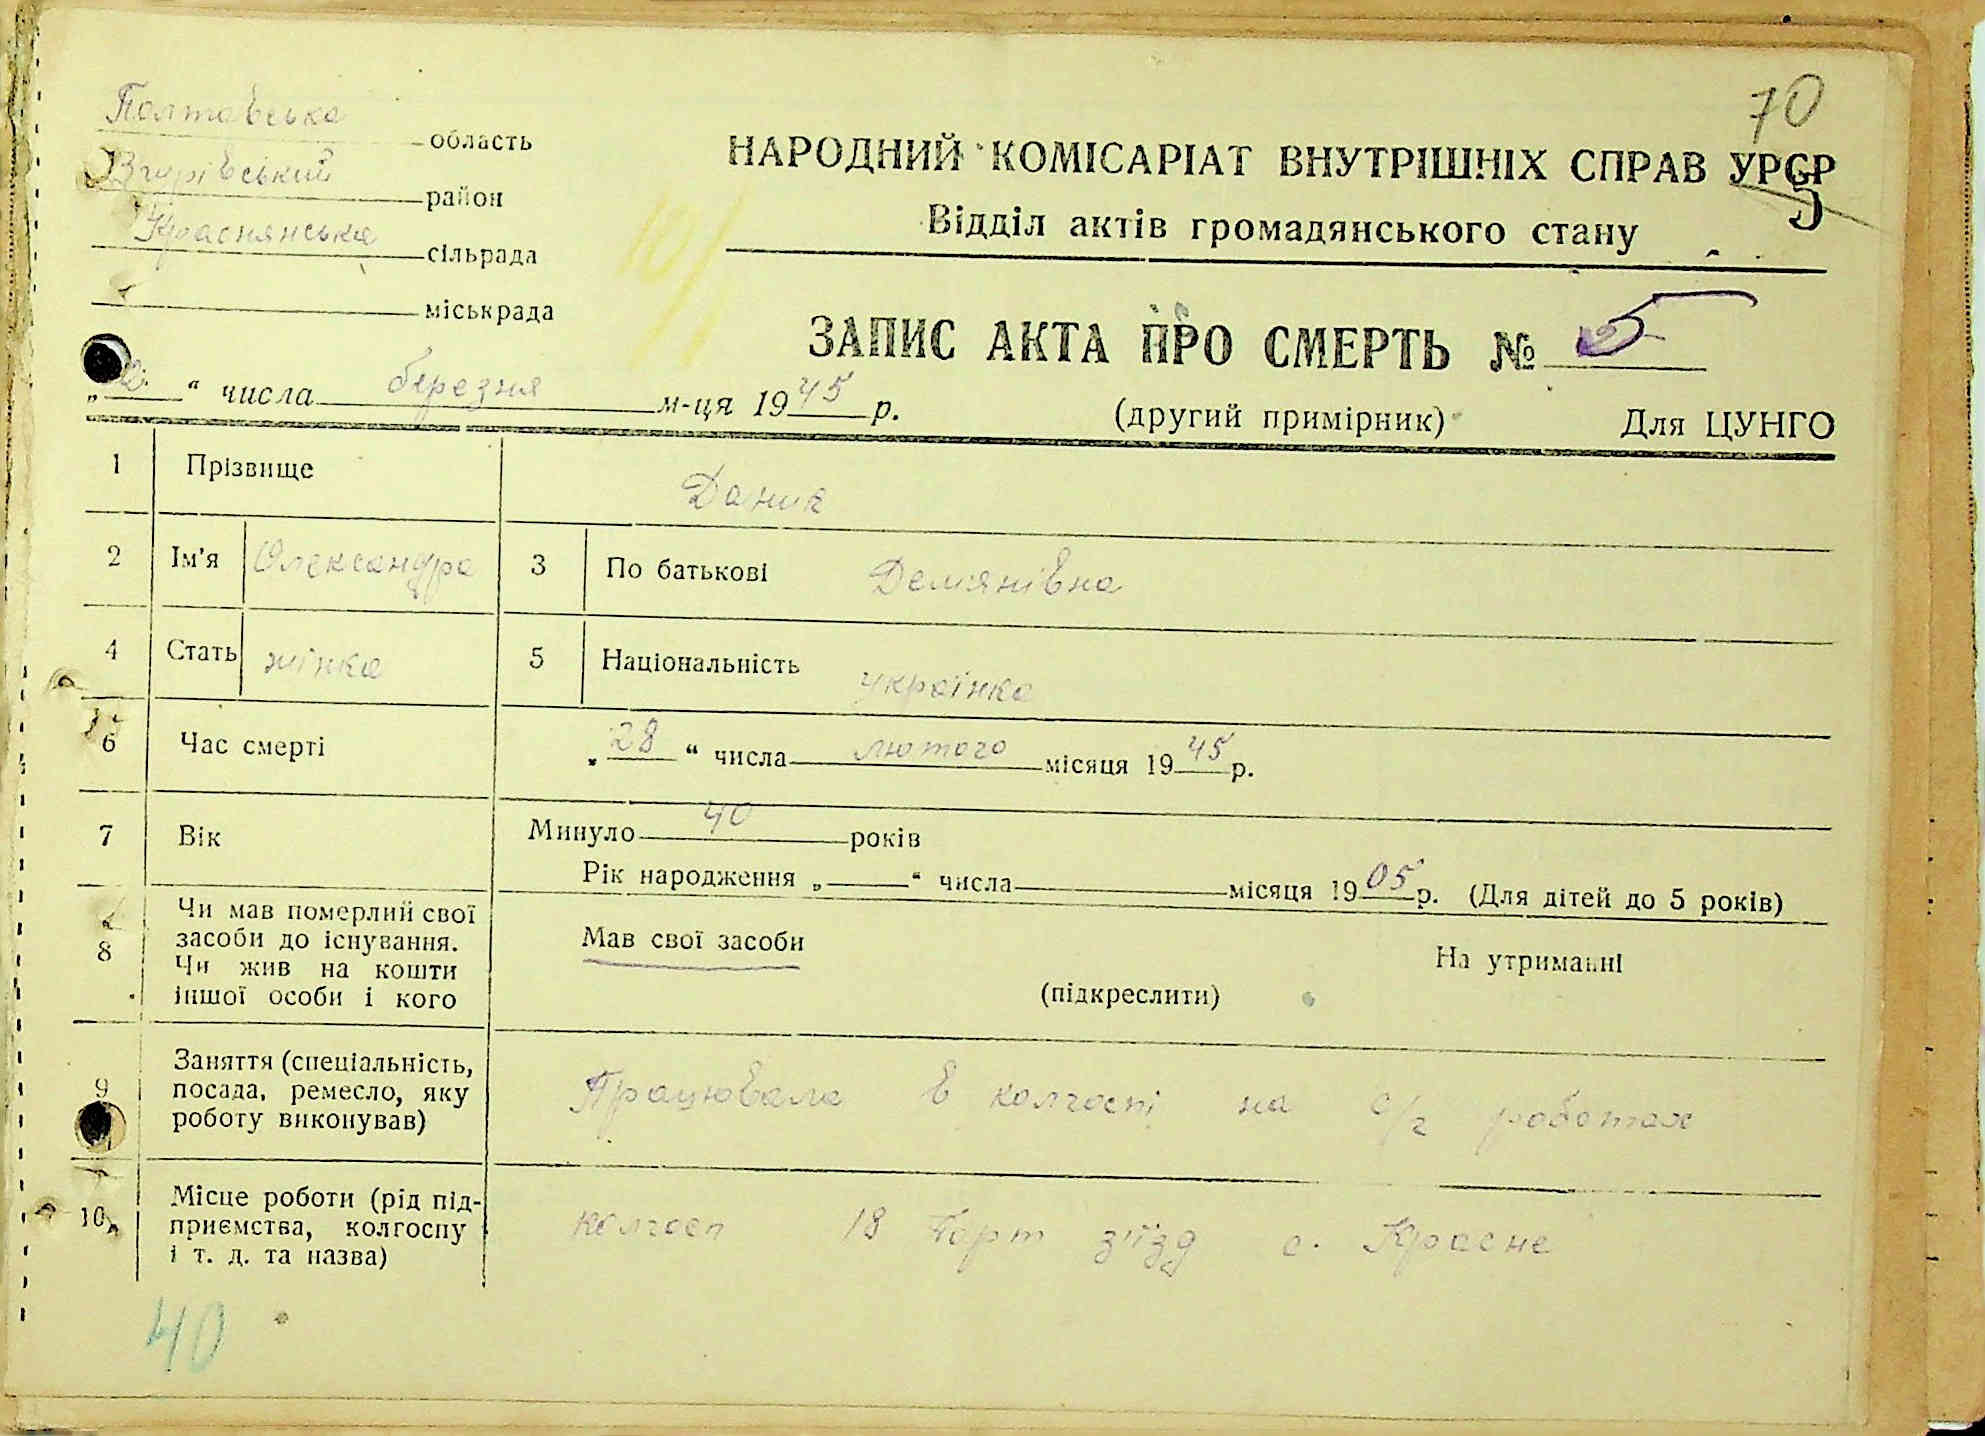 70
Полтавська область
Згурівський район
Краснянська сільрада
міськрада
НАРОДНИЙ КОМІСАРІАТ ВНУТРІШНІХ СПРАВ УРСР
5
Відділ актів громадянського стану
ЗАПИС АКТА ПРО СМЕРТЬ № 5
„2“ числа березня м-ця 1945 р.
(другий примірник) Для ЦУНГО
1 Прізвище
2 Ім'я Олександра 3 По батькові Демянівна
4 Стать жінка 5 Національність українка
6 Час смерті „28“ числа лютого місяця 1945 р.
7 Вік Минуло 40 років
Рік народження „ “ числа місяця 1905 р. (Для дітей до 5 років)
8 Чи мав померлий свої
засоби до існування.
Чи жив на кошти
іншої особи і кого
Мав свої засоби На утриманні
(підкреслити)
9 Заняття (спеціальність,
посада, ремесло, яку
роботу виконував)
Працювала в колгоспі на с/г роботах
10 Місце роботи (рід під-
приємства, колгоспу
і т. д. та назва)
колгосп 18 Парт з'їзд с. Красне
40